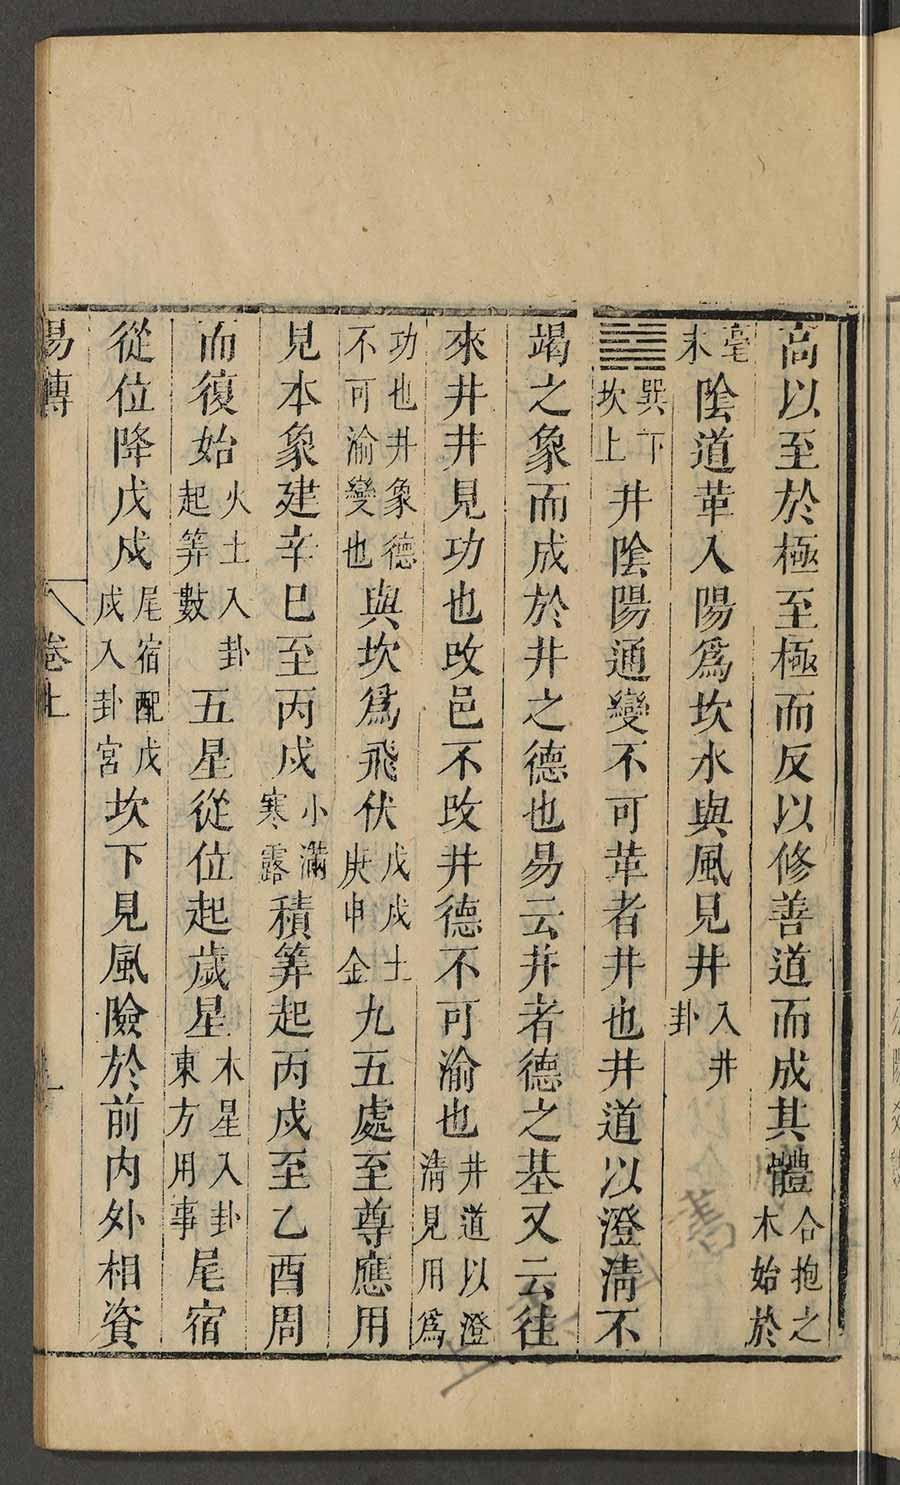 高以至於極至極而反以修善道而成其體合抱之木始於
毫末陰道革入陽爲坎水與風見井入井卦
䷯巽下坎上井陰陽通變不可革者井也井道以澄清不
竭之象而成於井之德也易云井者德之基又云往
來井井見功也改邑不改井德不可渝也井道以澄清見用爲
功也井象德不可渝變也與坎爲飛伏戊戌土庚申金九五處至尊應用
見本象建辛巳至丙戌小滿寒露積筭起丙戌至乙酉周
而復始火土入卦起筭數五星從位起歲星木星入卦東方用事尾宿
從位降戊戌尾宿配戊戌入卦宮坎下見風險於前内外相資
易傳 卷上